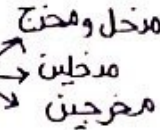 مدخل ومخرج
مدخلين
مخرجين